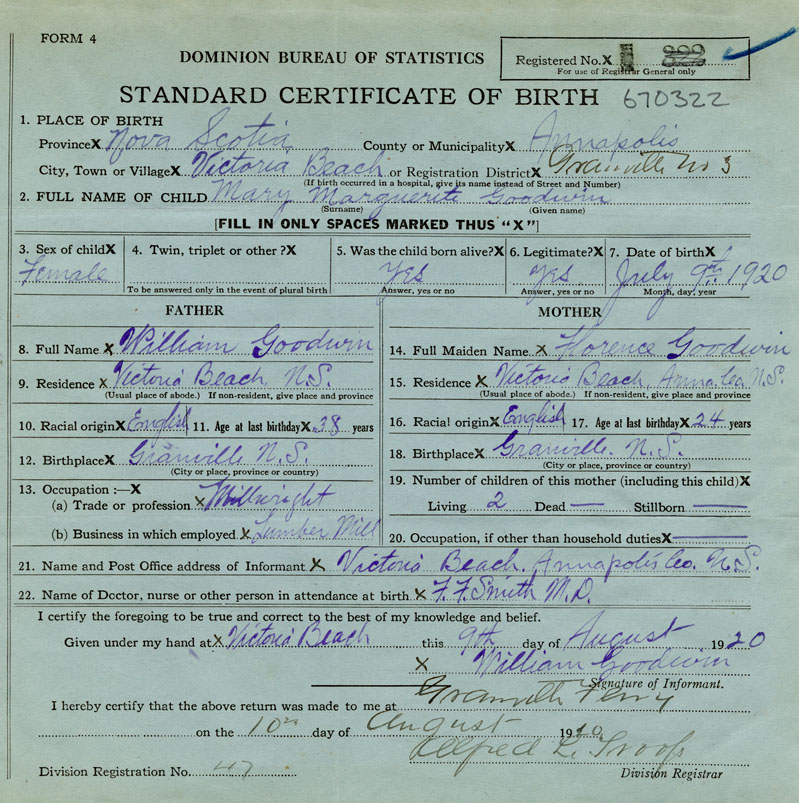 FORM 4
DOMINION BUREAU OF STATISTICS
Registered No. X
For use of Registrar General only
STANDARD CERTIFICATE OF BIRTH 670322
1. PLACE OF BIRTH
Province X Nova Scotia County or Municipality X Annapolis
City, Town or Village X Victoria Beach or Registration District X Granville No 3
(If birth occurred in a hospital, give its name instead of Street and Number)
2. FULL NAME OF CHILD Mary Marguerite Goodwin
(Surname) (Given name)
[FILL IN ONLY SPACES MARKED THUS "X"]
3. Sex of child X 4. Twin, triplet or other ? X 5. Was the child born alive? X 6. Legitimate? X 7. Date of birth X
Female Yes Yes July 9th 1920
To be answered only in the event of plural birth Answer, yes or no Answer, yes or no Month, day, year
FATHER
8. Full Name X William Goodwin
9. Residence X Victoria Beach N.S.
(Usual place of abode.) If non-resident, give place and province
10. Racial origin X English 11. Age at last birthday X 38 years
12. Birthplace X Granville N.S.
(City or place, province or country)
13. Occupation :—X
(a) Trade or profession X Millwright
(b) Business in which employed X Lumber Mill
MOTHER
14. Full Maiden Name X Florence Goodwin
15. Residence X Victoria Beach, Anna. Co. N.S.
(Usual place of abode.) If non-resident, give place and province
16. Racial origin X English 17. Age at last birthday X 24 years
18. Birthplace X Granville. N.S.
(City or place, province or country)
19. Number of children of this mother (including this child) X
Living 2 Dead — Stillborn —
20. Occupation, if other than household duties X —
21. Name and Post Office address of Informant X Victoria Beach, Annapolis Co. N.S.
22. Name of Doctor, nurse or other person in attendance at birth X F. F. Smith M.D.
I certify the foregoing to be true and correct to the best of my knowledge and belief.
Given under my hand at X Victoria Beach this 9th day of August 1920
X William Goodwin
Signature of Informant.
I hereby certify that the above return was made to me at Granville Ferry
on the 10th day of August 1920
Alfred L. Troop
Division Registration No. 47 Division Registrar